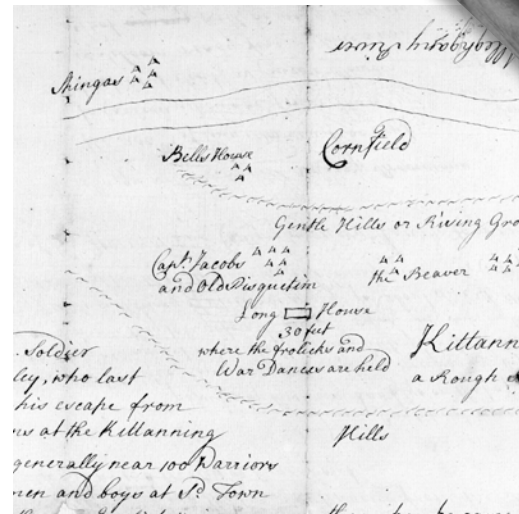 Alleghgany River
Shingas
Bells House
Cornfield
Gentle Hills or Rising Gro
Capt. Jacobs
and Old Pisquetim
the Beaver
Long House
30 feet
where the frolicks and
War Dances are held
Kittann
a Rough
Hills
Soldier
ley, who last
his escape from
ns at the Kittanning
generally near 100 Warriors
men and boys at Sd. Town